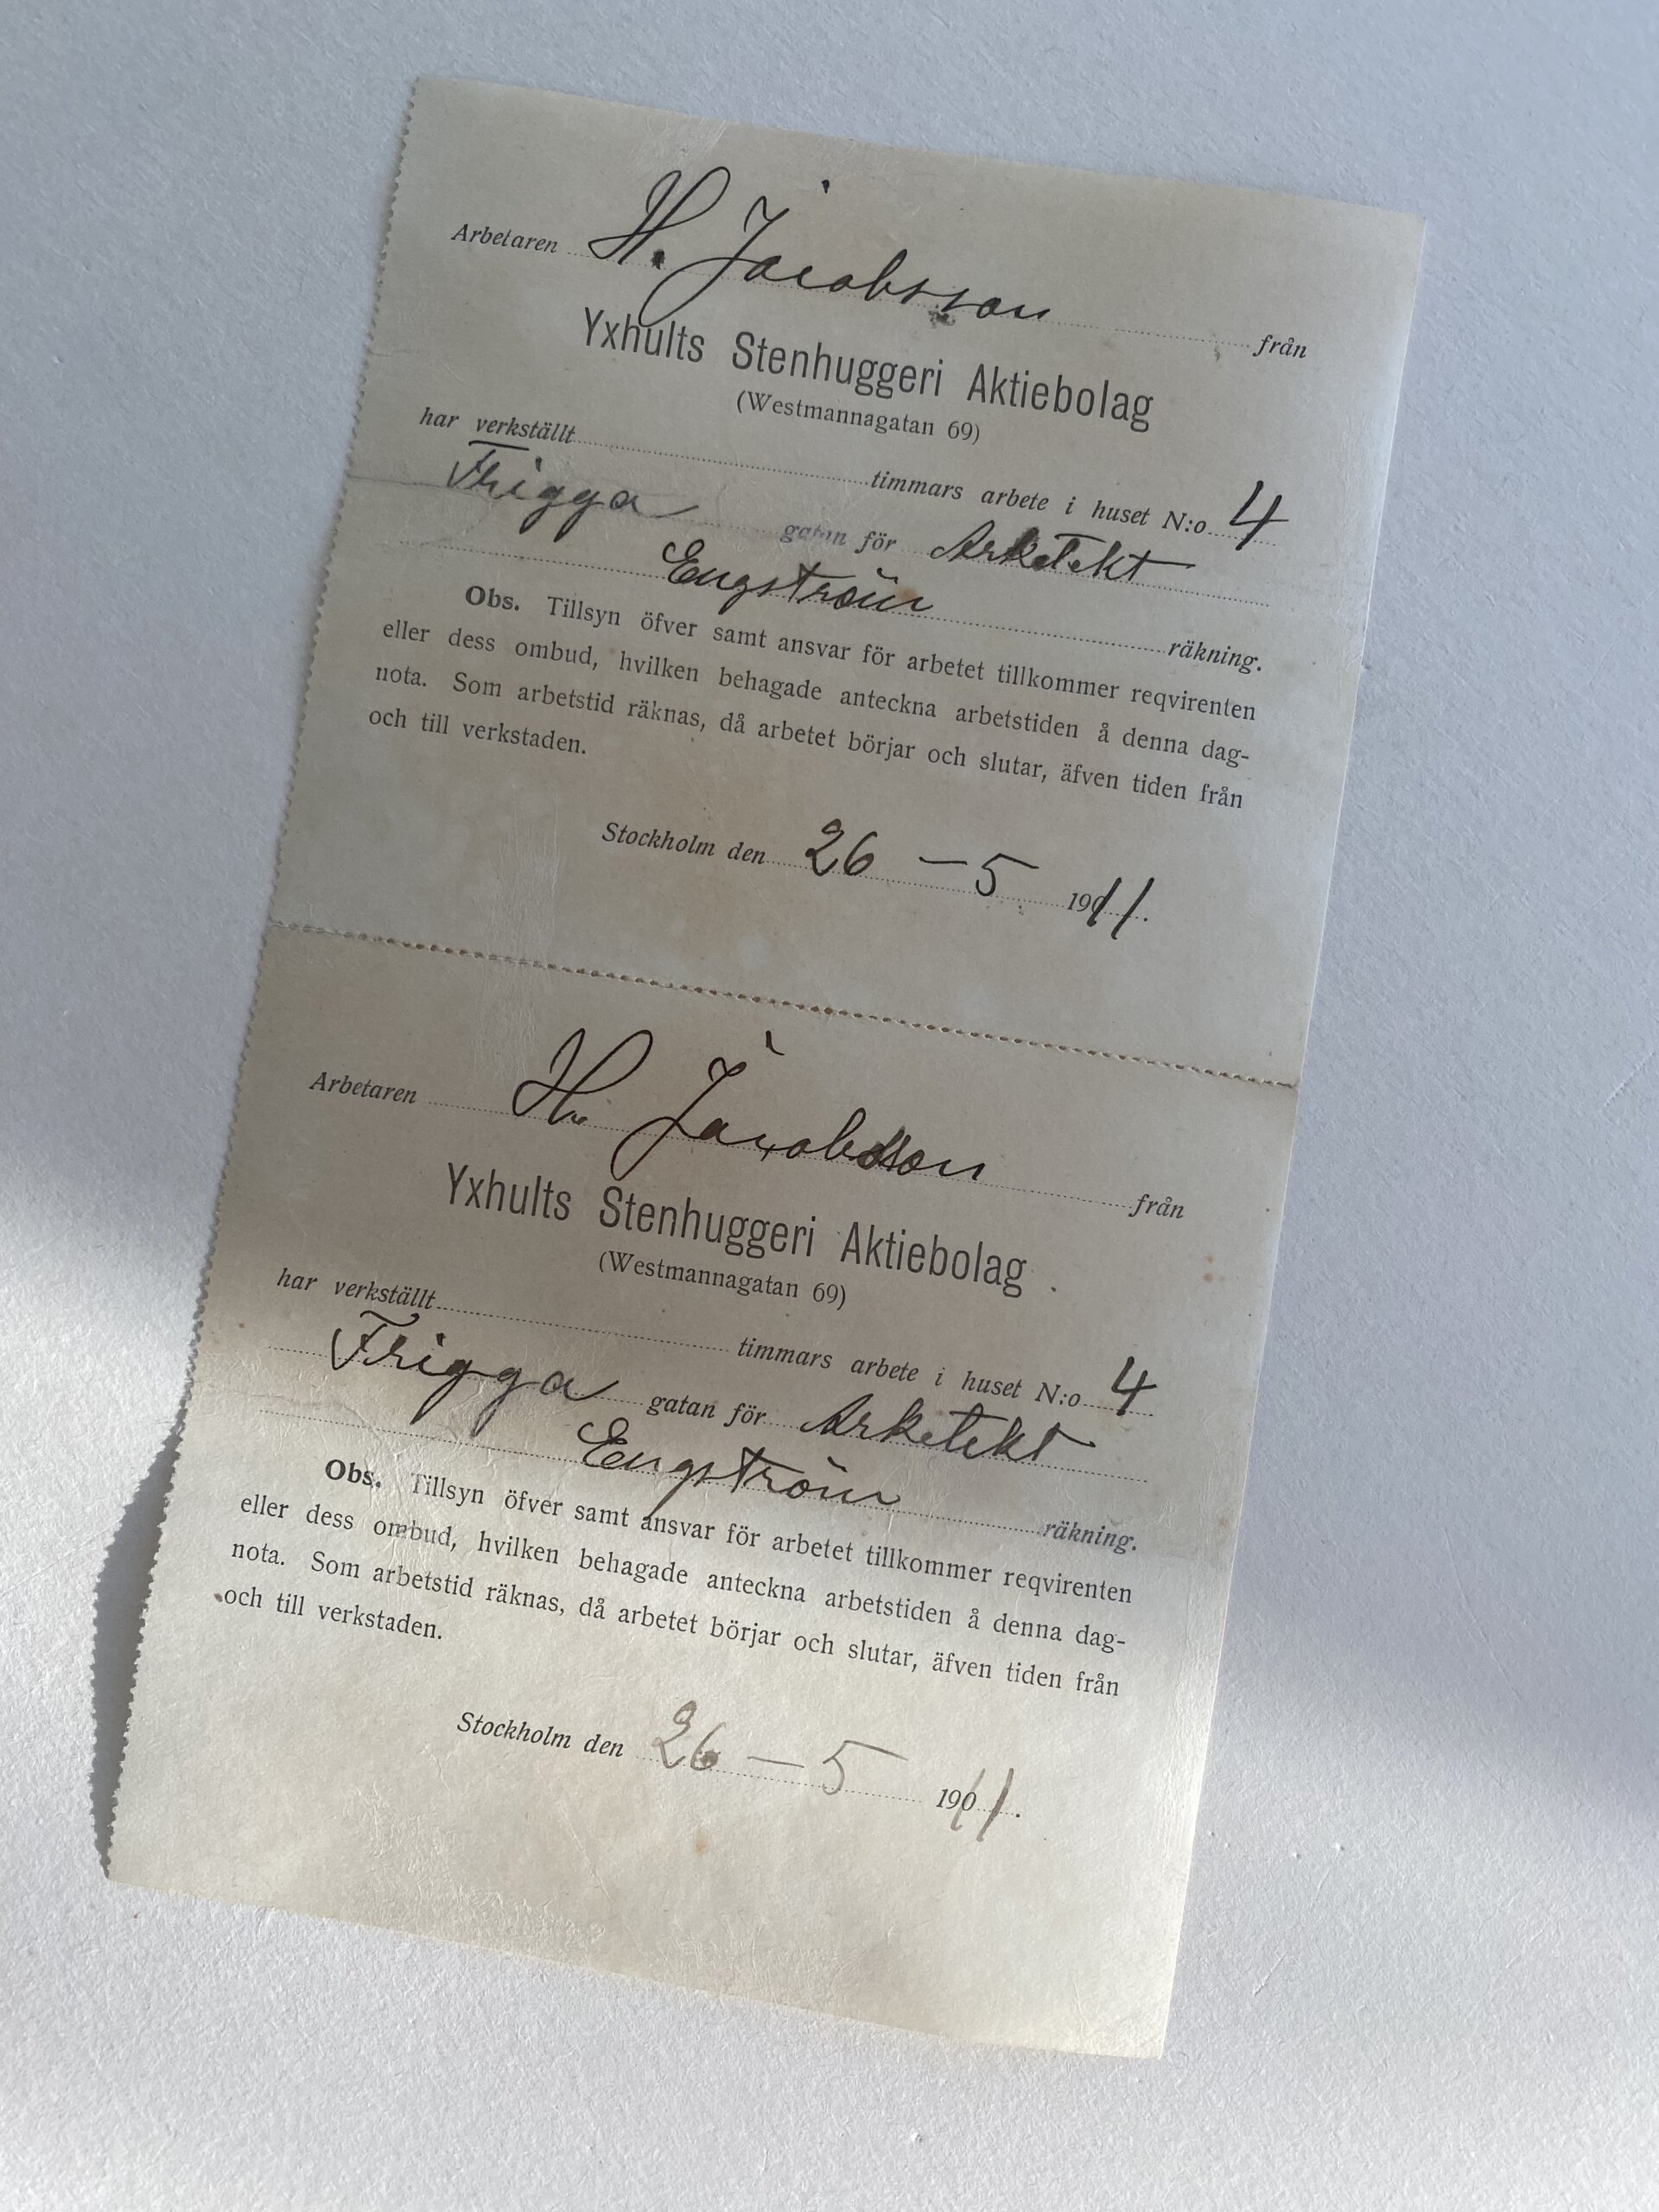 Arbetaren H. Jacobsson från
Yxhults Stenhuggeri Aktiebolag
(Westmannagatan 69)
har verkställt timmars arbete i huset N:o 4
Frigga gatan för Arketekt
Engström räkning.
Obs. Tillsyn öfver samt ansvar för arbetet tillkommer reqvirenten
eller dess ombud, hvilken behagade anteckna arbetstiden å denna dag-
nota. Som arbetstid räknas, då arbetet börjar och slutar, äfven tiden från
och till verkstaden.
Stockholm den 26 – 5 1911.
Arbetaren H. Jacobsson från
Yxhults Stenhuggeri Aktiebolag
(Westmannagatan 69)
har verkställt timmars arbete i huset N:o 4
Frigga gatan för Arketekt
Engström räkning.
Obs. Tillsyn öfver samt ansvar för arbetet tillkommer reqvirenten
eller dess ombud, hvilken behagade anteckna arbetstiden å denna dag-
nota. Som arbetstid räknas, då arbetet börjar och slutar, äfven tiden från
och till verkstaden.
Stockholm den 26 – 5 1911.